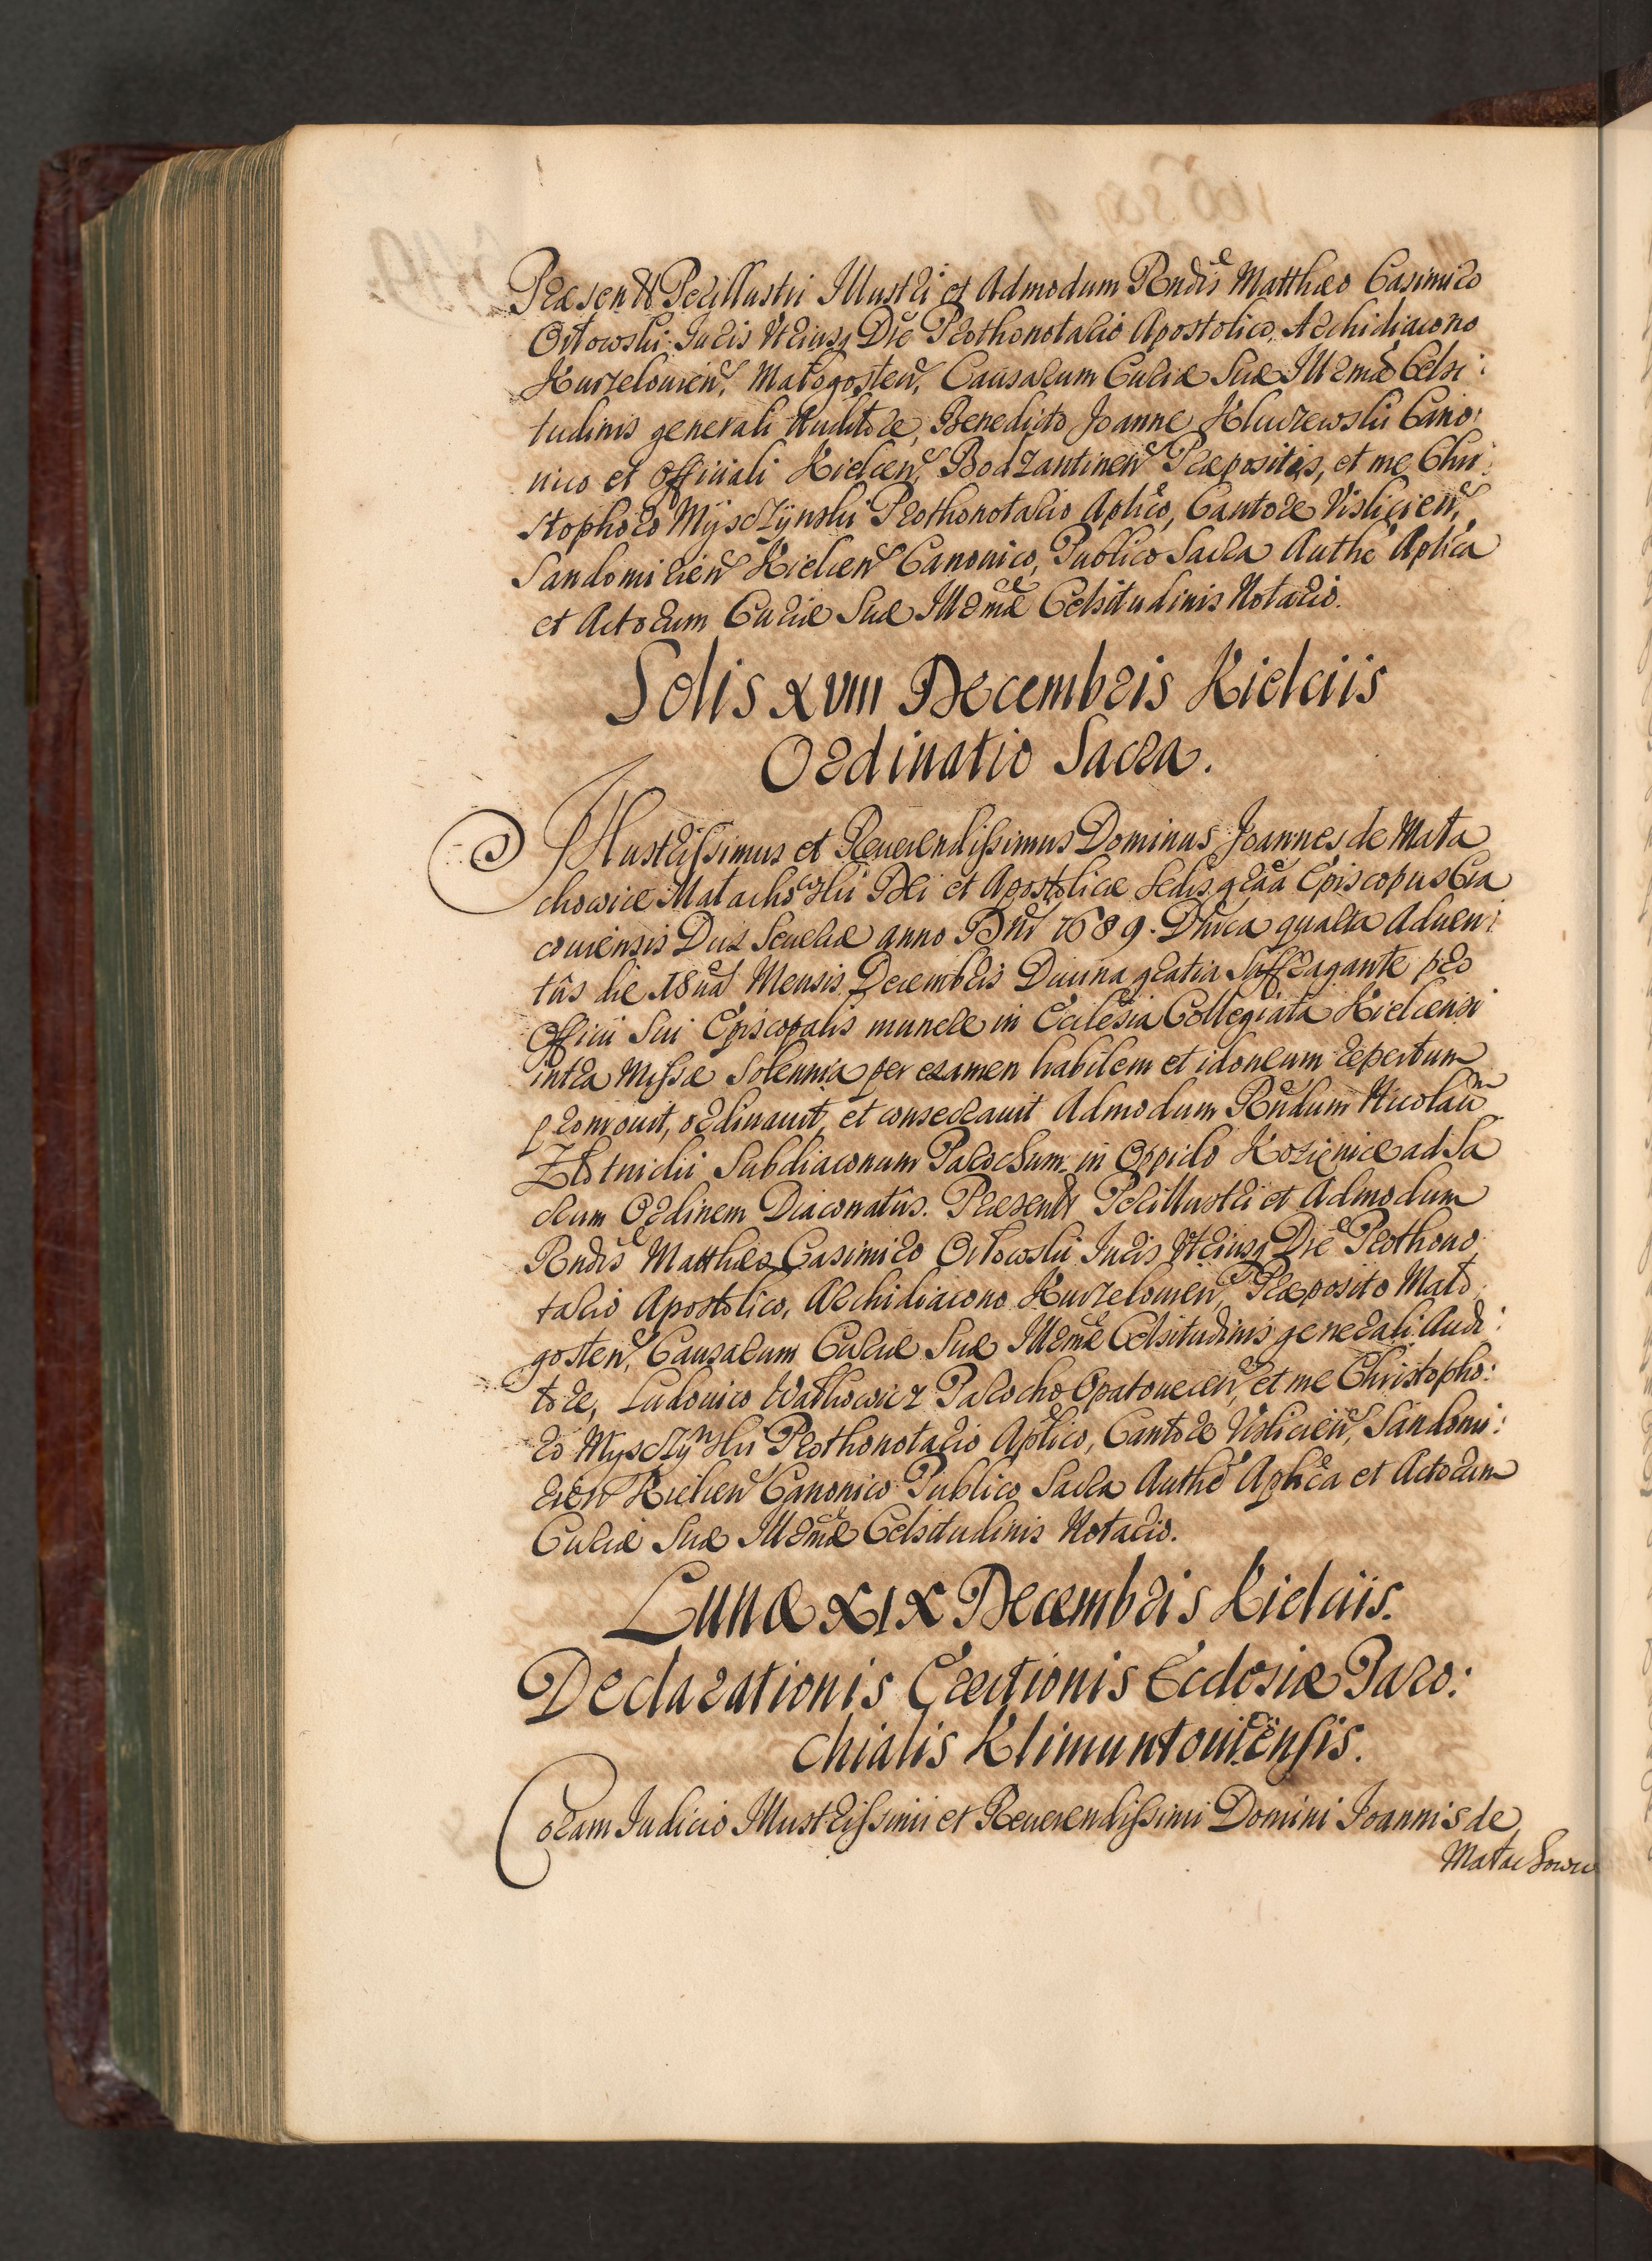 Præsentt Perillustri Illustri et Admodum Rndis Matthæo Casimiro
Oriłowski Iuris Vtriusq Dre Prothonotario Apostolico, Archidiacono
Kurzelouien, Małogosten, Causarum Curiæ Suæ Illrmæ Celsi:
tudinis generali Auditore, Benedicto Joanne Kluczewski Cano:
nico et Officiali Kielcen, Bodzantinen Præpositis, et me Chri:
stophoro Mÿsczÿnski Prothonotario Aplico, Cantore Vislicien,
Sandomirien Kielcen Canonico, Publico Sacra Authe Aplica
et Actorum Curiæ Suæ Illrmæ Celsitudinis Notario.
Solis XVIII Decembris Kielciis
Ordinatio Sacra.
Illustrissimus et Reuerendissimus Dominus Joannes de Mała
chowice Małachowski Dei et Apostolicæ Sedis graã Episcopus Cra
couiensis Dux Seueriæ anno Dnĩ 1689. Dnica quarta Aduen:
tûs die 18ua Mensis Decembris Diuina gratia suffragante pro
Officii sui Episcopalis munere in Ecclesia Collegiata Kielcensi
intra Missæ Solennia per examen habilem et idoneum repertum
promouit, ordinauit, et consecrauit Admodum Rndum Nicolaũ
Złotnicki Subdiaconum Parochum in Oppido Kozięnice ad Sa
crum Ordinem Diaconatûs. Præsentt Perillustri et Admodum
Rndis Matthæo Casimiro Oriłowski Iuris Vtriusq Dre Prothono
tario Apostolico, Archidiacono Kurzelouien, Præposito Mało
gosten, Causarum Curiæ Suæ Illrmæ Celsitudinis generali Audi:
tore, Ludouico Wałkowicz Parocho Opatouecen, et me Christopho:
ro Mÿsczÿnski Prothonotario Aplico, Cantore Vislicien, Sandomi:
rien Kielcen Canonico Publico Sacra Authe Aplica et Actorum
Curiæ Suæ Illrmæ Celsitudinis Notario.
Lunæ XIX Decembris Kielciis.
Declarationis Erectionis Ecclesiæ Paro:
chialis Klimuntouiensis.
Coram Iudicio Illustrissimi et Reuerendissimi Domini Joannis de
Małachowice